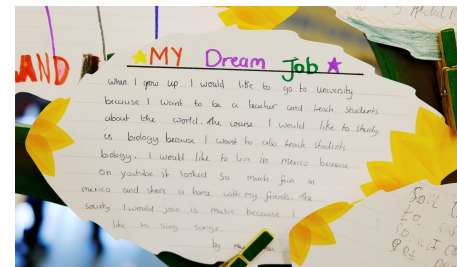 MY Dream Job
When I grow up I would like to go to university
because I want to be a teacher and teach students
about the world. The course I would like to study
is biology because I want to also teach students
biology. I would like to live in mexico because
on youtube it looked so much fun in
mexico and share a home with my friends. The
society I would join is music because I
like to sing songs
by
LAND